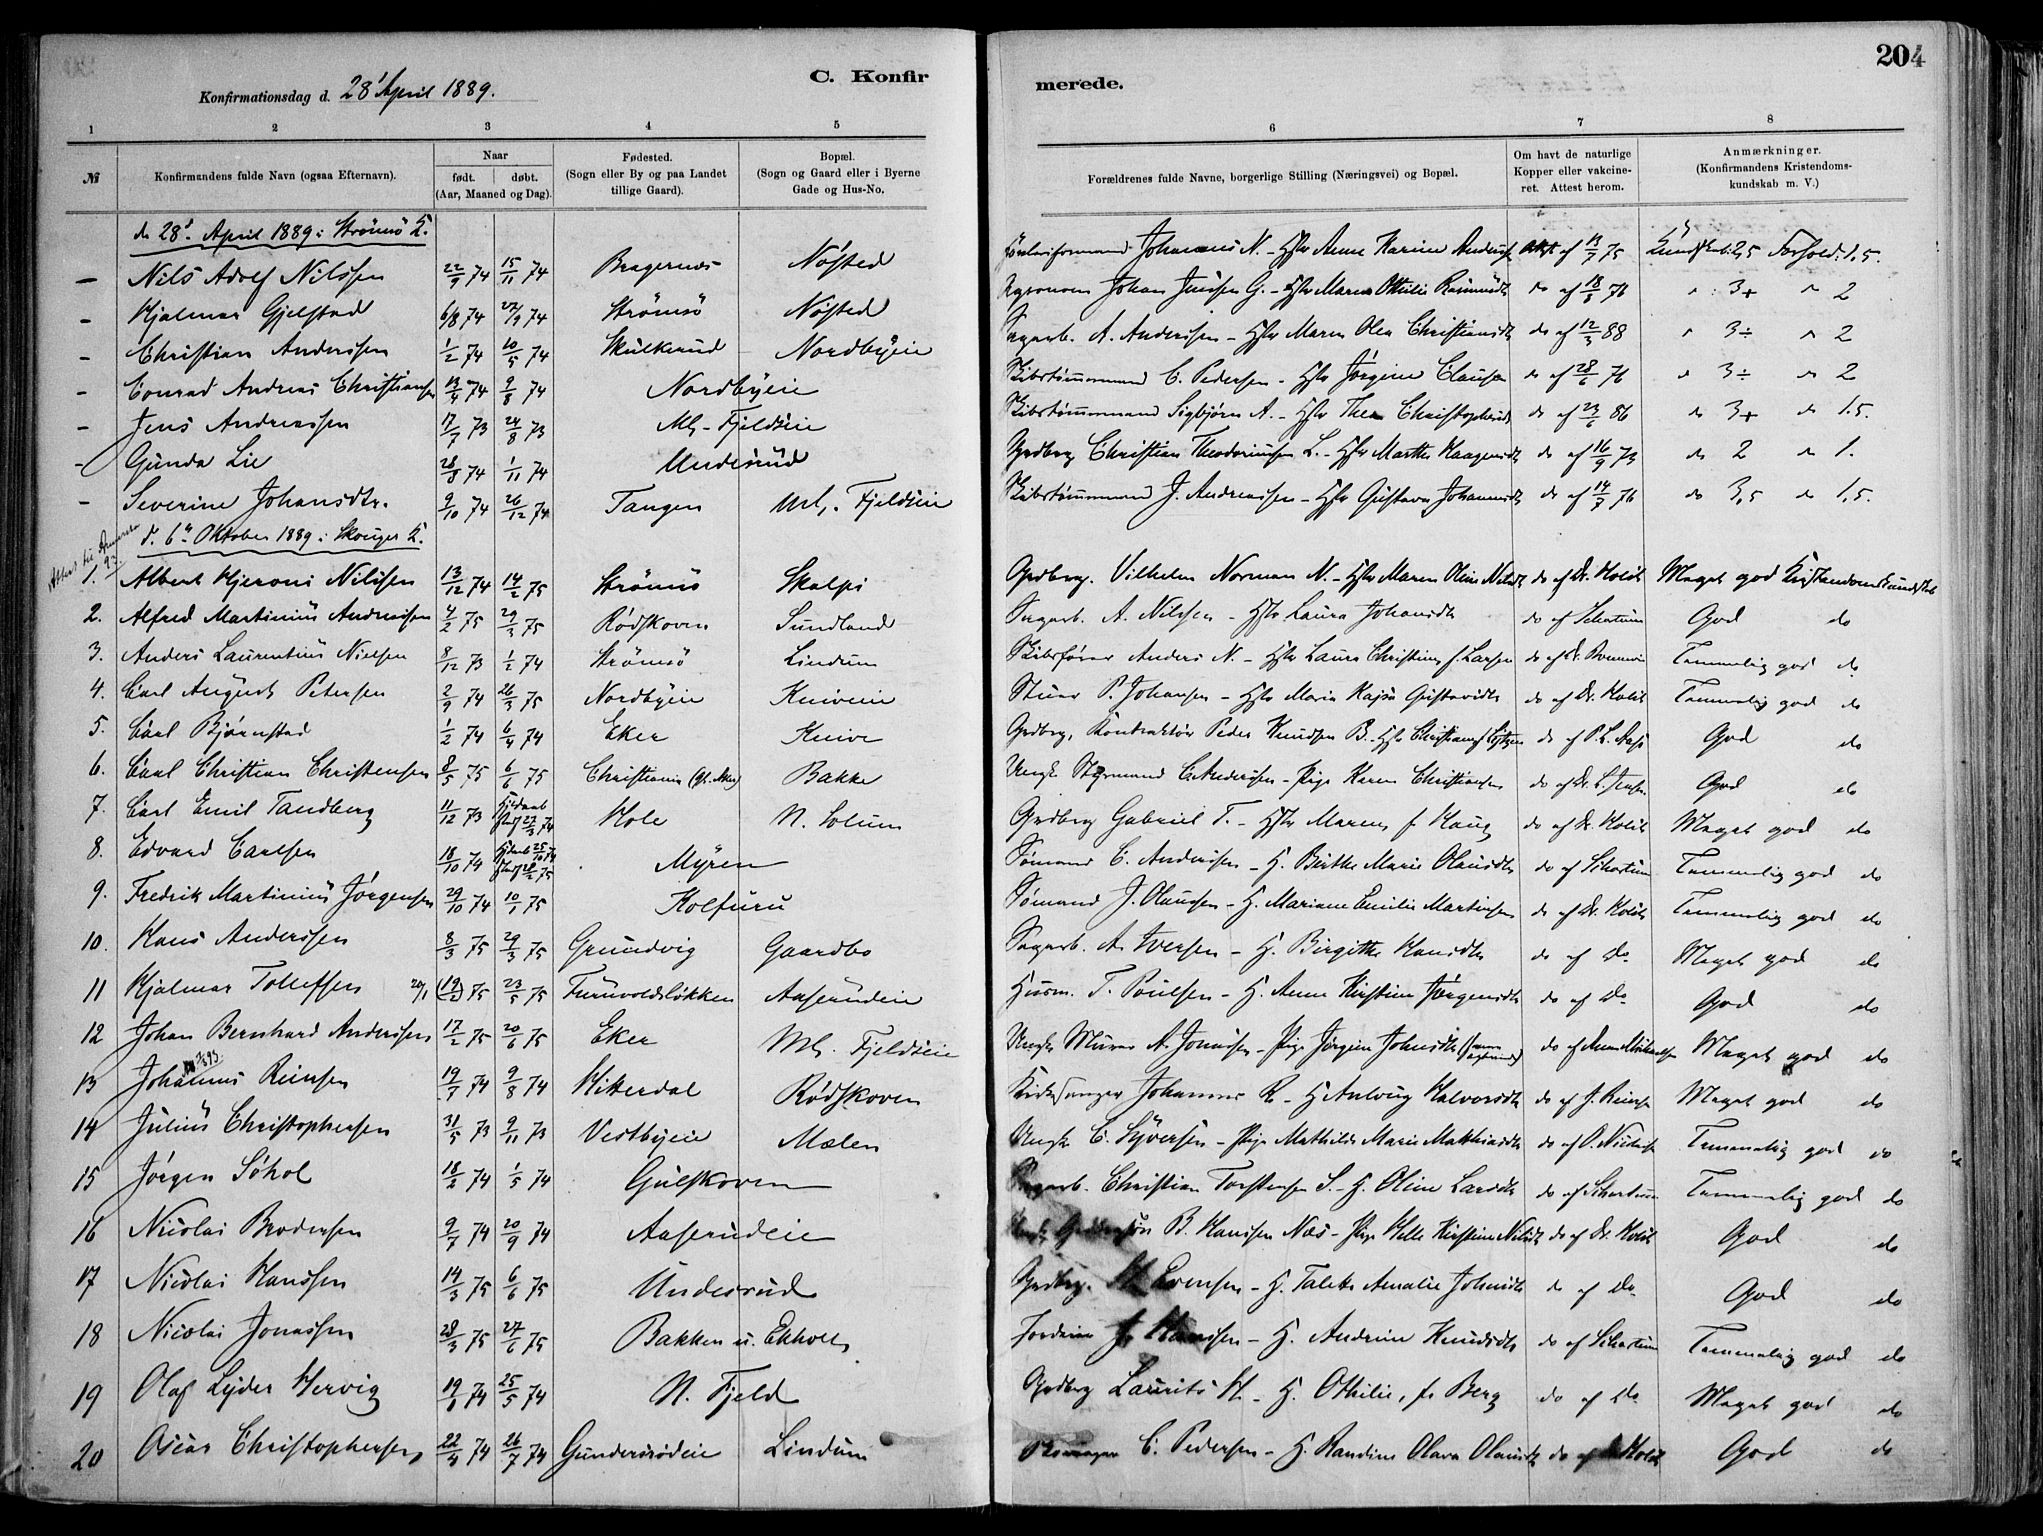 204
C. Konfir
merede.
Konfirmationsdag d. 28' April 1889.
1 2 3 4 5 6 7 8
№ Konfirmandens fulde Navn (ogsaa Efternavn). Naar født. døbt. (Aar, Maaned og Dag). Fødested. (Sogn eller By og paa Landet tillige Gaard). Bopæl. (Sogn og Gaard eller i Byerne Gade og Hus-No. Forældrenes fulde Navne, borgerlige Stilling (Næringsvei) og Bopæl. Om havt de naturlige Kopper eller vakcineret. Attest herom. Anmærkninger. (Konfirmandens Kristendomskundskab m. V.)
d. 28' April 1889 i Strömsö K.
– Nils Adolf Nilssen 22/9 74 15/11 74 Bragernæs Nøsted Johannes N. – Hstr Anne Karine af 75 2,5 Forhold: 1,5.
– Hjalmar Gjelstad 6/8 74 27/9 74 Strömsö Nøsted Agronom Johan Jenssen G. – Hstr Maren Othilie do af 18 76 " 3+ " 2
– Christian Anderssen 1/2 74 10/5 74 Skulkerud Nordbyeie Sagarb. A. Anderssen – Hstr Maren Olea Christiansdtr do af 12/3 88 " 3÷ " 2
– Conrad Andreas Christiansen 13/4 74 9/8 74 Nordbyeie Skibstømmermand C. Pedersen – Hstr Jörgine Clausen do af 28/6 76 " 3÷ " 2
– Jens Andreassen 17/7 73 24/8 73 Ml. Fjeldseie Skibstømmermand Sigbjørn A. – Hstr Thea Christophersdt do af 23/6 86 do 3+ do 1.5.
– Gunda Lie 28/8 74 1/11 74 Undesrud Grdbrg Christian Theodoriussen L. – Hstr Marthe Haagensdtr do af 16/9 73 do 2 do 1.
– Severine Johansdtr. 9/10 74 26/12 74 Tangen Ml. Fjeldseie Skibstømmermand J. Andreassen – Hstr Gustava Johannesdt do af 14/7 76 do 3,5 do 1,5.
d. 6te Oktober 1889 i Skouger K.
1. Albert Hjeroni Nilssen 13/12 74 14/2 75 Strömsö Skalpi Grdbrg. Vilhelm Norman N. – Hstr Maren Oline Nilsdt do af Dr. Holst Meget god Kristendomskundskab
2. Alfred Martinius Andreassen 4/2 75 29/3 75 Rødskoven Sundland Sagarb. A. Nilssen – Hstr Laura Johansdtr do af Schartum God do
3. Anders Laurentius Nielsen 8/12 73 1/2 74 Strömsö Lindum Skibsfører Anders N. – Hstr Laura Christine f. Larsen do af Dr. Temmelig god do
4. Carl August Petersen 2/9 74 26/3 75 Nordbyeie Kniveeie Stuer P. Johansen – Hstr Maria Kajsa Gustavsdtr do af Dr. Holst Temmelig god do
5. Carl Bjørnstad 1/2 74 6/4 74 Eker Knive Grdbrg, Kontraktør Peder Knudsen B. – Hstr Christiane do af P. L. God do
6. Carl Christian Christensen 8/5 75 6/6 75 Christiania (Gl. Aker) Bakke Ungk. Styrmand C. Andersen – Pige Karen Christiansen do af Dr. God do
7. Carl Emil Tandberg 11/12 73 Hjdøbt 74 Hole N. Solum Grdbrg Gabriel T. – Hstr Maren f. Haug do af Dr. Holst Meget god do
8. Edvard Carlsen 18/10 74 Hjdøbt 25/10 74 75 Myren Sømand C. Anderssen – H. Berthe Marie Olausdtr do af Schartum Temmelig god do
9. Fredrik Martinius Jørgensen 29/10 74 10/1 75 Kolfuru Sømand J. Olaussen – H. Mariane Emilie Martinsen do af Dr. Holst Temmelig god do
10. Hans Anderssen 8/3 75 29/3 75 Grundvig Gaardbo Sagarb. A. Iversen – H. Birgitte Hansdtr do af Do Meget god do
11 Hjalmar Tollefsen 29/1 (19/2) 75 23/5 75 Furuvoldsløkken Aaserudeie Husm. T. Poulsen – H. Anne Kirstine Jørgensdtr do af Do God do
12 Johan Bernhard Anderssen 17/2 75 20/6 75 Eker Ml. Fjeldseie Ungk. Murer A. Jonassen – Pige Jørgine Johnsdtr do af Anne Meget god do
13 Johannes Reinsen 19/7 74 9/8 74 Hitterdal Rødskoven Kirkesanger Johannes R – H Antvug Halvorsdtr do af J. Reinsen Meget god do
14 Julius Christophersen 31/5 73 9/11 73 Vestbyeie Mælen Ungk. C. Syversen – Pige Mathilde Marie Mathiasdtr do af Temmelig god do
15 Jørgen Söhol 18/2 74 1/5 74 Gulskoven Sagarb. Christian Torstensen S. – H. Oline Larsdtr do af Schartum Temmelig god do
16 Nicolai Brodersen 9/7 74 20/9 74 Aaserudeie B. Hanssen Næs – Pige Helle Kirstine Nilsdt do af Dr. Holst God do
17 Nicolai Hanssen 14/3 75 6/6 75 Undesrud Grdbrg. H. Evensen – H. Talette Amalie Johnsdtr do af Do God do
18 Nicolai Jonassen 28/3 75 27/6 75 Bakken u. Ekholt J. Hanssen – H. Andrine Knudsdtr do af Schartum Temmelig god do
19 Olaf Lyder Hervig 19/1 74 25/5 74 N. Fjeld Grdbrg Laurits H. – H. Othilie, f. Berg do af Do Meget god do
20 Oscar Christophersen, 22/4 74 26/7 74 Gundersrødeie Lindum C. Pedersen – H. Randine Olava Olausdtr do af Holst God do